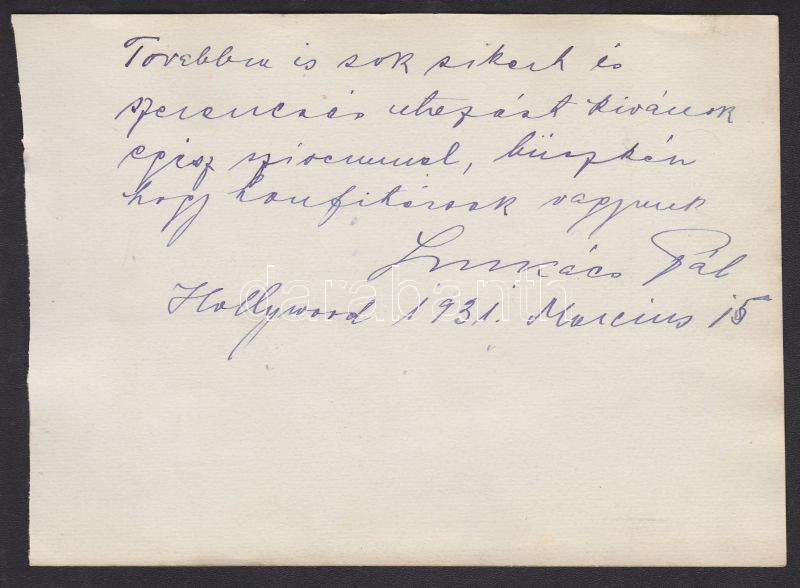 Továbbra is sok sikert és
szerencsés utazást kivánok
egész szivemmel, büszkén
hogy honfitársak vagyunk
Lukács Pál
darabanth
Hollywood 1931. Marcius 15